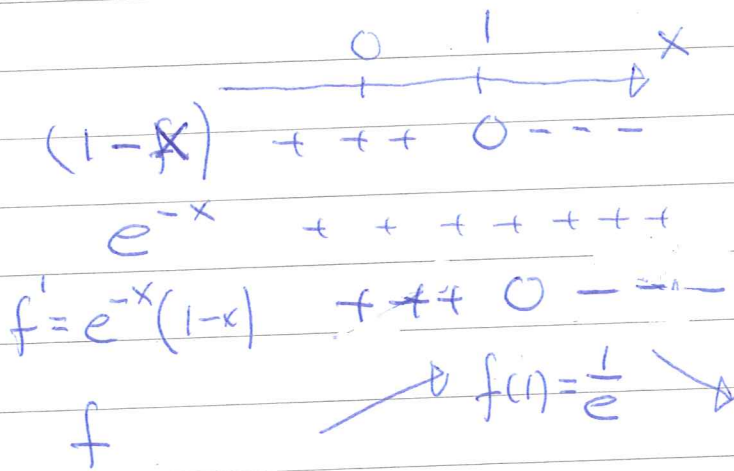 0 1 x
(1-x) + + + 0 - - -
e^{-x} + + + + + + +
f' = e^{-x}(1-x) + + + 0 - - - -
f ↗ f(1) = 1/e ↘